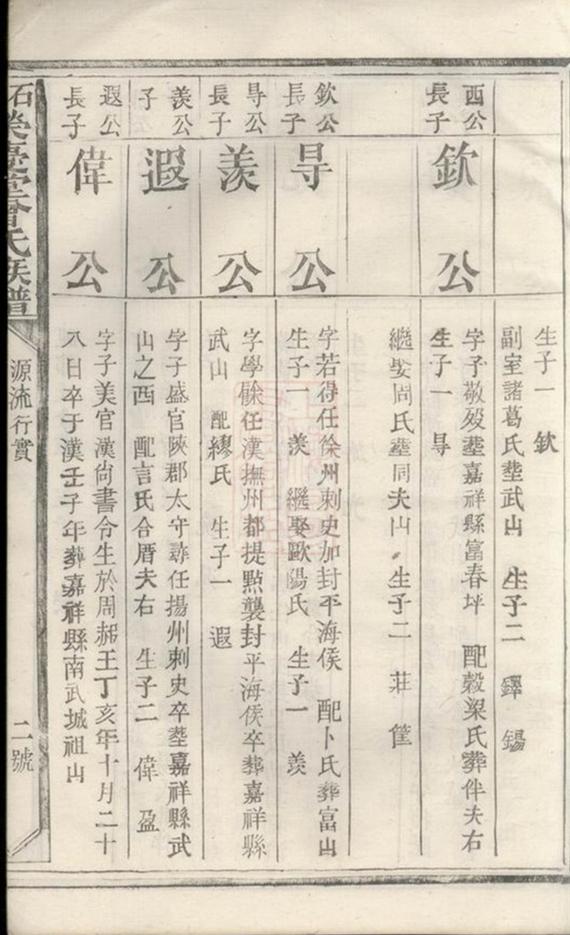 生子一　欽
副室諸葛氏塟武山　生子二　鐸　錫
西公
長子
欽公
字子敬歿塟嘉祥縣富春坪　配穀梁氏葬伴夫右
生子一　㝵
繼娶周氏塟同夫山　生子二　莊　筐
欽公
長子
㝵公
字若得任徐州刺史加封平海侯　配卜氏葬富山
生子一　羨　繼娶歐陽氏　生子一　羨
㝵公
長子
羨公
字學餘任漢撫州都提點襲封平海侯卒葬嘉祥縣
武山　配繆氏　生子一　遐
羨公
子
遐公
字子盛官陝郡太守尋任揚州刺史卒塟嘉祥縣武
山之西　配言氏合厝夫右　生子二　偉　盈
遐公
長子
偉公
字子美官漢尙書令生於周赧王丁亥年十月二十
八日卒于漢壬子年葬嘉祥縣南武城祖山
曾氏族譜
源流行實
二號